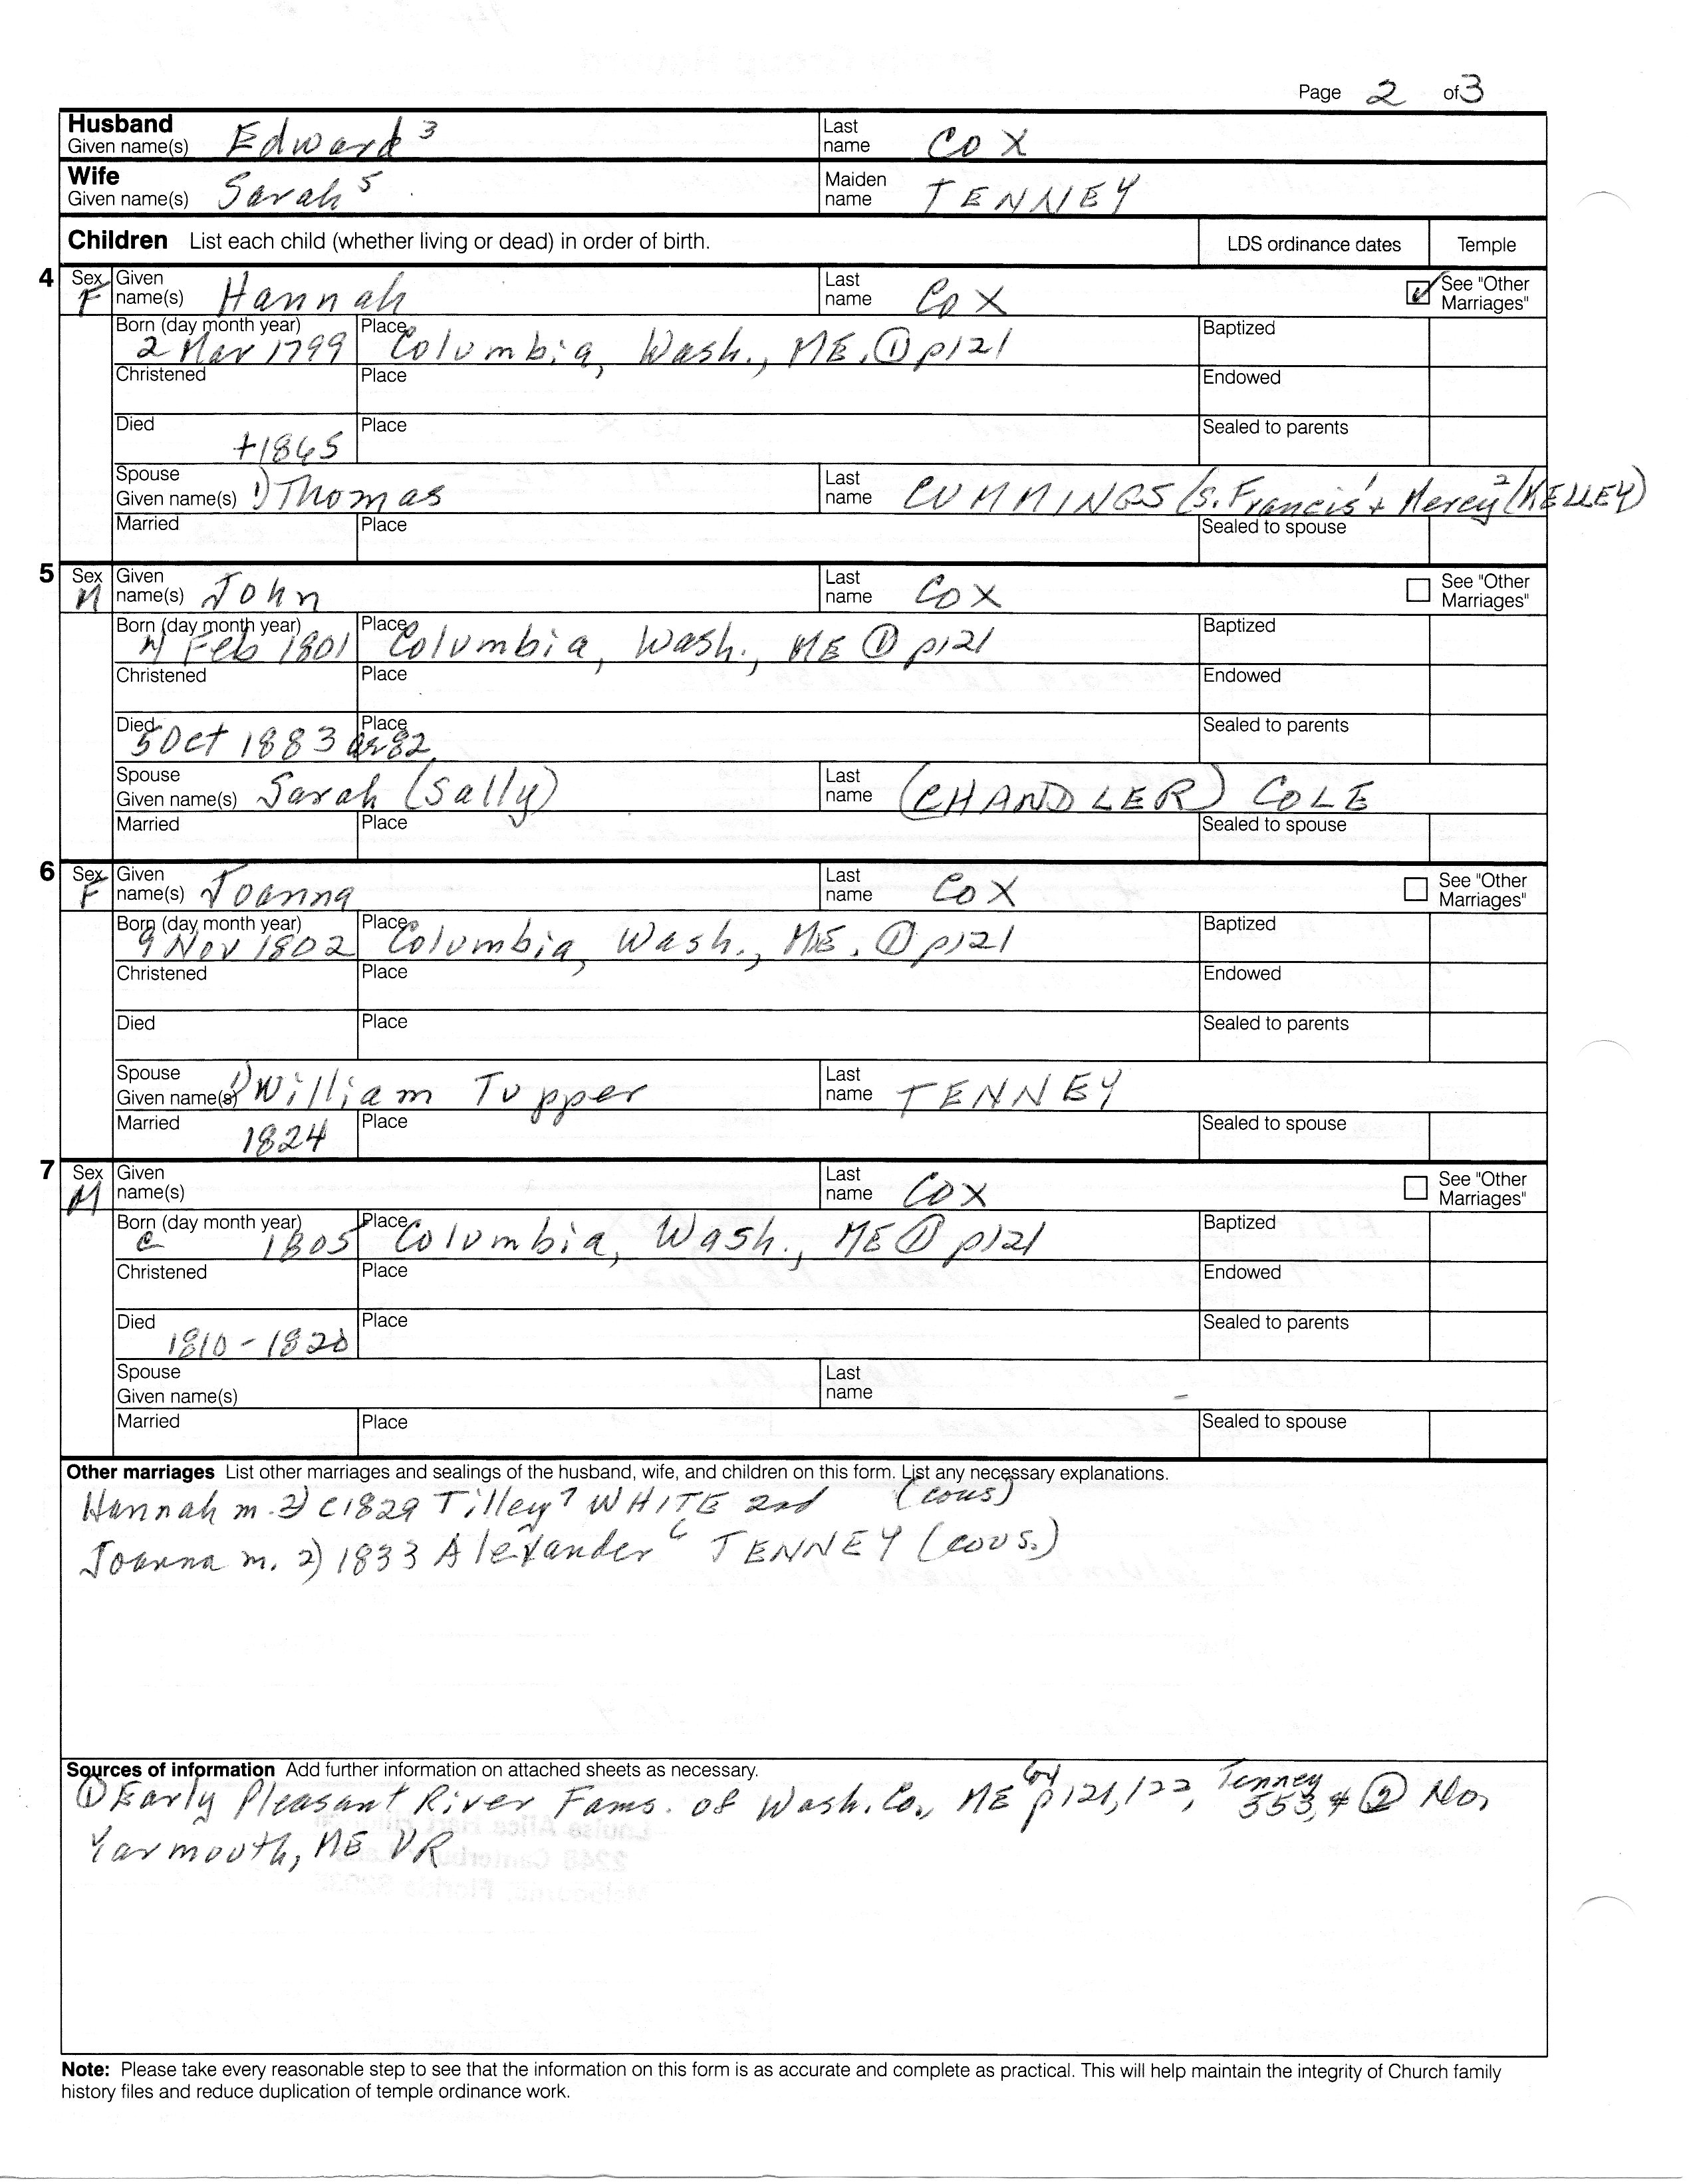 Page 2 of 3
Husband
Given name(s) Edward 3 Last name COX
Wife
Given name(s) Sarah 5 Maiden name TENNEY
Children List each child (whether living or dead) in order of birth. LDS ordinance dates Temple
4 Sex F Given name(s) Hannah Last name COX ✓ See "Other Marriages"
Born (day month year) 2 Mar 1799 Place Columbia, Wash., ME. ① p121 Baptized
Christened Place Endowed
Died +1865 Place Sealed to parents
Spouse Given name(s) 1) Thomas Last name CUMMINGS (s. Francis 1 + Mercy 2 (KELLEY)
Married Place Sealed to spouse
5 Sex M Given name(s) John Last name COX See "Other Marriages"
Born (day month year) Feb 1801 Place Columbia, Wash., ME ① p121 Baptized
Christened Place Endowed
Died 5 Oct 1883 Place ae 82 Sealed to parents
Spouse Given name(s) Sarah (Sally) Last name (CHANDLER) COLE
Married Place Sealed to spouse
6 Sex F Given name(s) Joanna Last name COX See "Other Marriages"
Born (day month year) 9 Nov 1802 Place Columbia, Wash., ME. ① p121 Baptized
Christened Place Endowed
Died Place Sealed to parents
Spouse Given name(s) 1) William Tupper Last name TENNEY
Married 1824 Place Sealed to spouse
7 Sex M Given name(s) Last name COX See "Other Marriages"
Born (day month year) c 1805 Place Columbia, Wash., ME ① p121 Baptized
Christened Place Endowed
Died 1810-1820 Place Sealed to parents
Spouse Given name(s) Last name
Married Place Sealed to spouse
Other marriages List other marriages and sealings of the husband, wife, and children on this form. List any necessary explanations.
Hannah m. 2) c1829 Tilley 7 WHITE 2nd (cous)
Joanna m. 2) 1833 Alexander 6 TENNEY (cous.)
Sources of information Add further information on attached sheets as necessary.
① Early Pleasant River Fams. of Wash. Co., ME Cox p121,122, Tenney 353, + ② No.
Yarmouth, ME VR
Note: Please take every reasonable step to see that the information on this form is as accurate and complete as practical. This will help maintain the integrity of Church family
history files and reduce duplication of temple ordinance work.